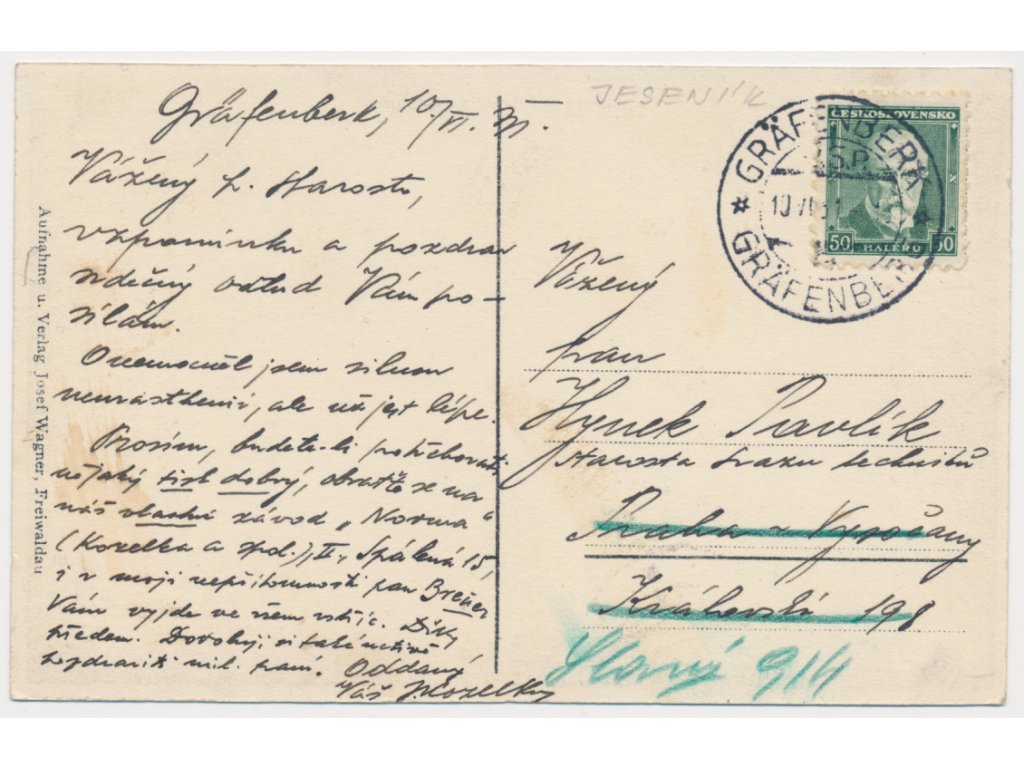 Gräfenberk, 10/VI. 31.
Vážený p. starosto,
vzpomínku a pozdrav
srdečný odtud Vám po-
sílám.
Onemocněl jsem silnou
neurasthenií, ale už jest lépe.
Prosím, budete-li potřebovati
nějaký tisk dobrý, obraťte se na
náš vlastní závod „Norma"
(Kozelka a spol.), II., Spálená 15,
i v mojí nepřítomnosti pan Breuer
Vám vyjde ve všem vstříc. Díky
předem. Dovoluji si
pozdraviti mil. paní.
Oddaný
Váš JKozelka
Aufnahme u. Verlag Josef Wagner, Freiwaldau
JESENÍK
ČESKOSLOVENSKO
50 HALÉŘŮ 50
GRÄFENBERK
10 VI 31
GRÄFENBERG
Vážený
pan
Hynek Pavlík
starosta svazu techniků
Praha - Vysočany
Královská 198
Slaný 914